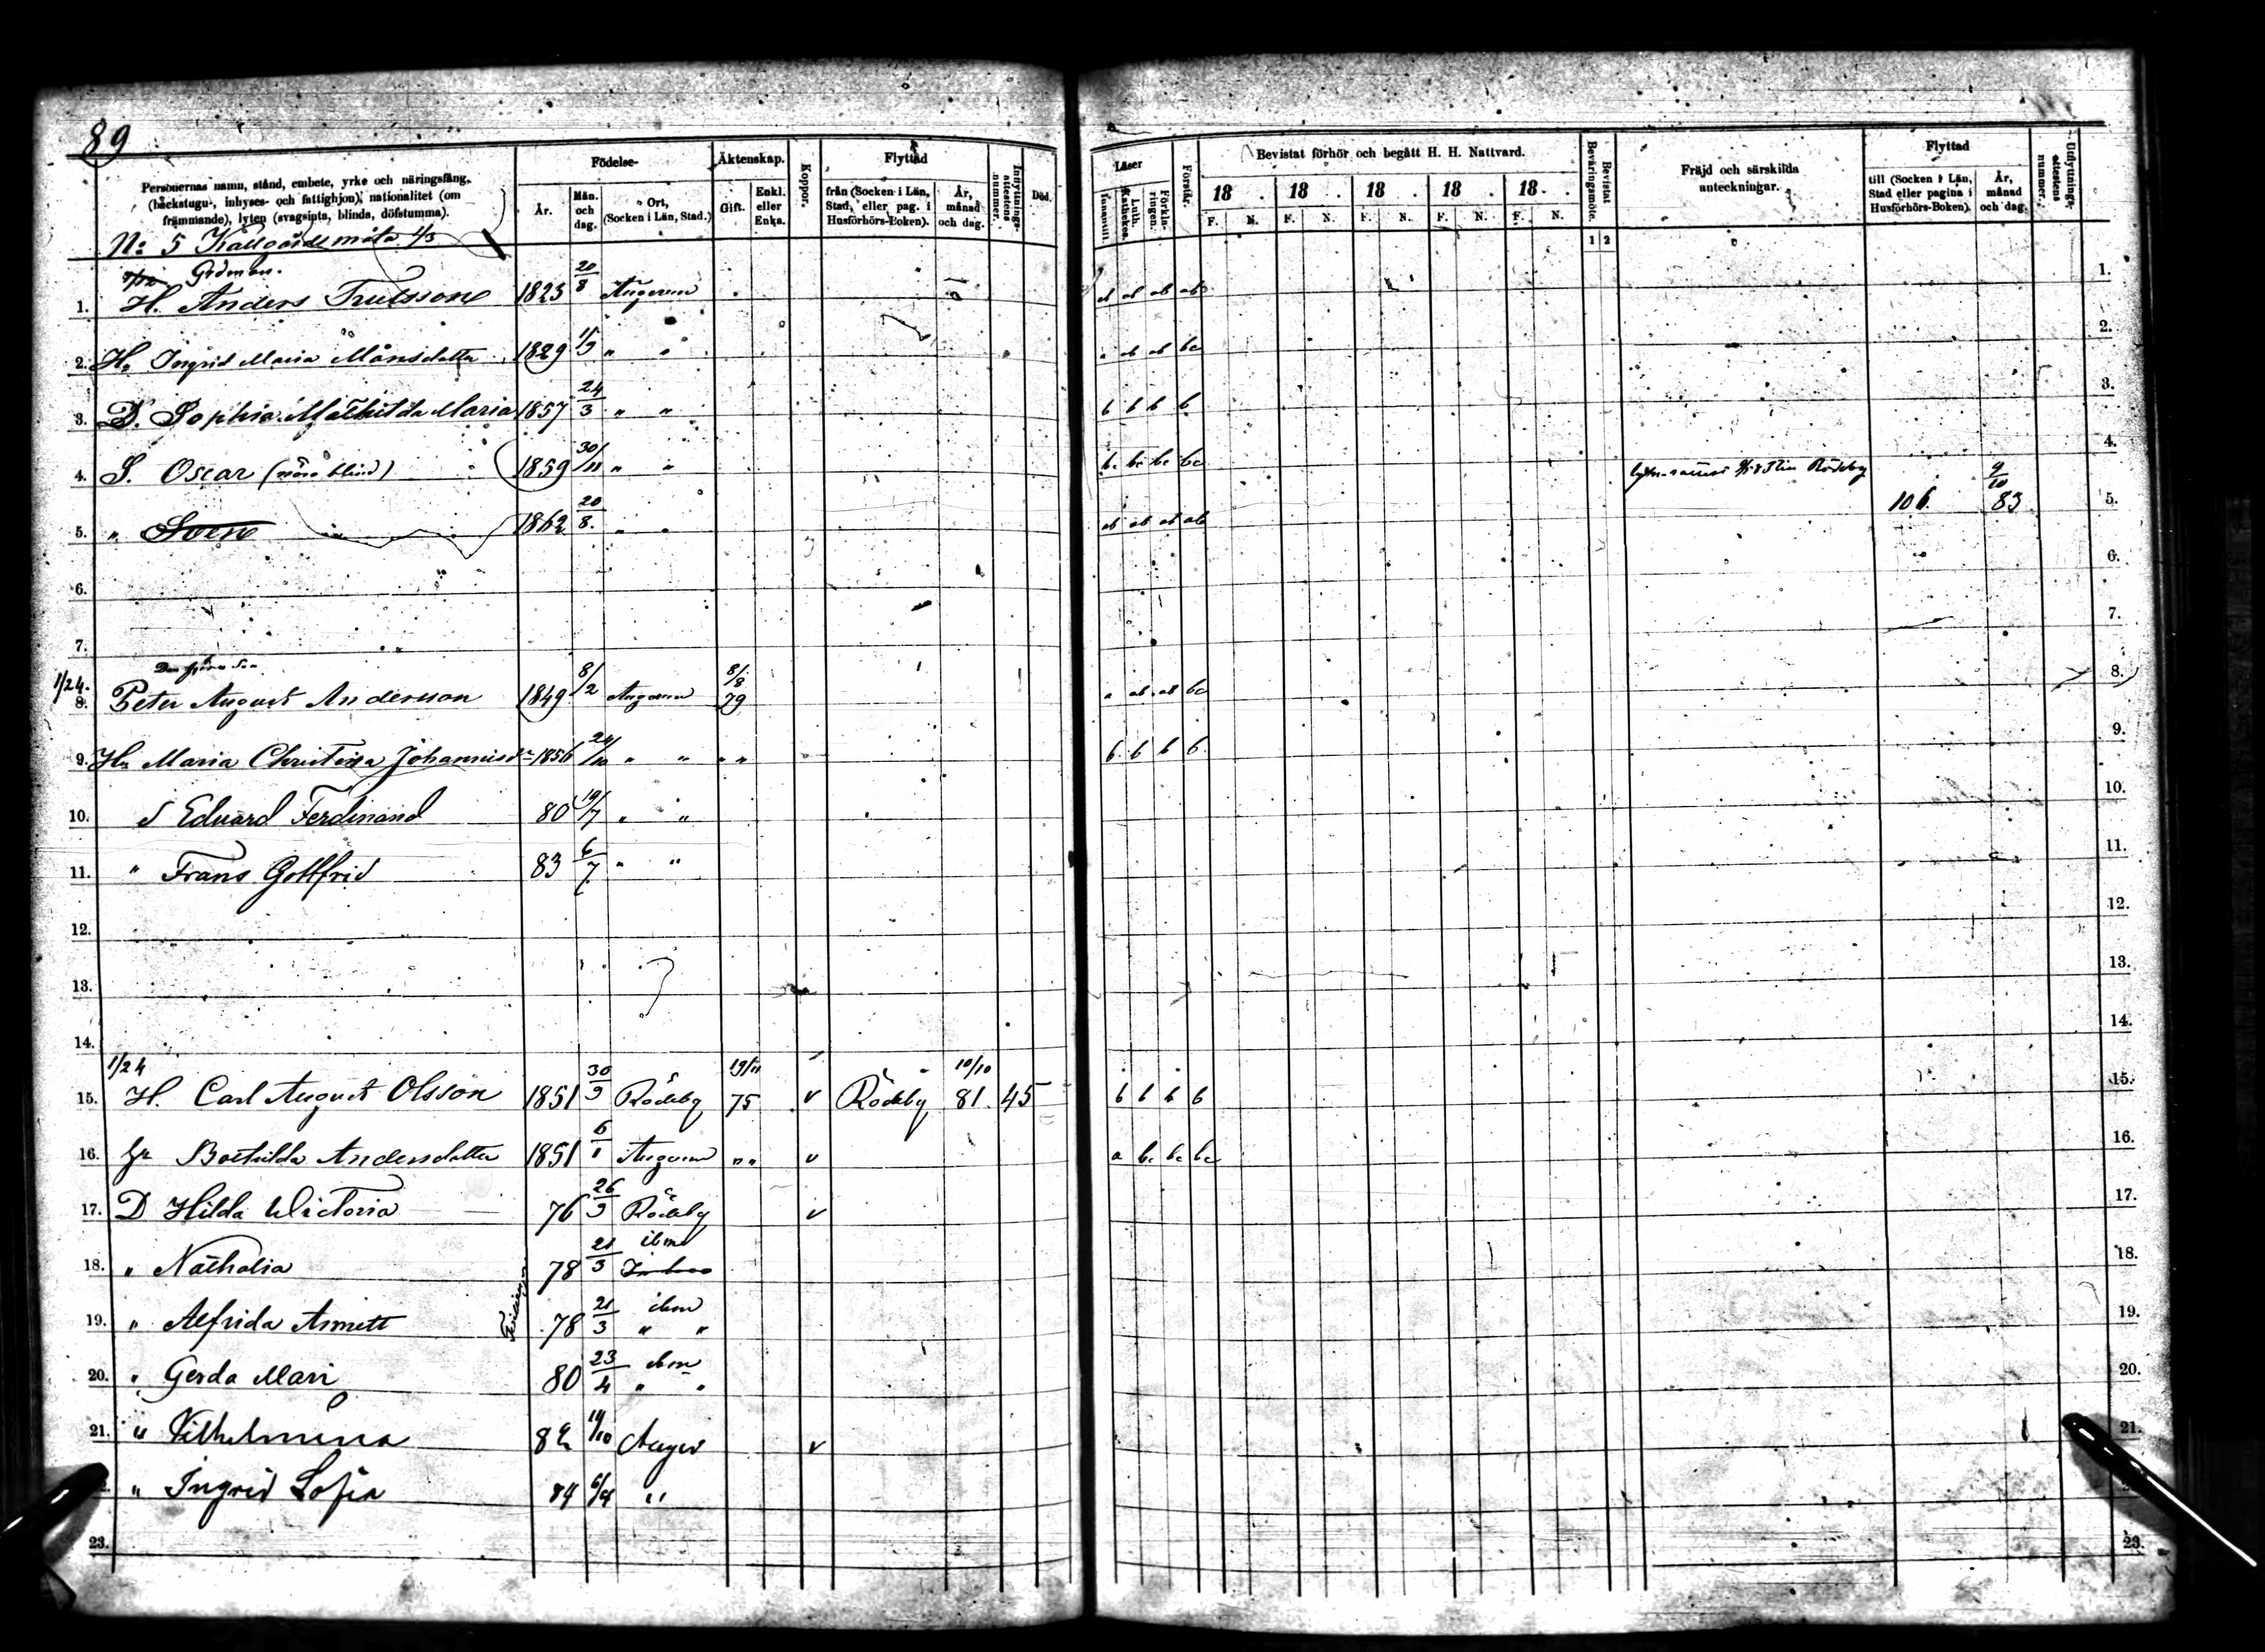 89
Personernas namn, stånd, embete, yrke och näringsfång, (backstugu-, inhyses- och fattighjon), nationalitet (om främmande), lyten (svagsinta, blinda, döfstumma).
Födelse-
År.
Mån. och dag.
Ort, (Socken i Län, Stad.)
Äktenskap.
Gift.
Enkl. eller Enka.
Koppor.
Flyttad
från (Socken i Län, Stad, eller pag. i Husförhörs-Boken).
År, månad och dag.
Inflyttnings-attestens nummer.
Död.
Läser
Innantill.
Luth. Kathekes.
Förkla-ringen.
Förstår.
Bevistat förhör och begått H. H. Nattvard.
18 . 18 . 18 . 18 . 18 .
F. N. F. N. F. N. F. N. F. N.
Bevistat Beväringsmöte.
1 2
Fräjd och särskilda anteckningar.
Flyttad
till (Socken i Län, Stad eller pagina i Husförhörs-Boken).
År, månad och dag.
Utflyttnings-attestens nummer.
No 5 Kallgårdsmåla 1/3
1. H. Anders Trulsson 1823 20/8 Augerum ab ab ab ab 1.
2. Hu Ingrid Maria Månsdotter 1829 15/9 " " a ab ab bc 2.
3. D. Sophia Mathilda Maria 1857 24/3 " " b b b b 3.
4. S. Oscar (nära blind) 1859 30/11 " " bc bc bc bc Rödeby 4.
5. " Sven 1862 20/8 " " ab ab ab ab 106 9/10 83 5.
6. 6.
7. 7.
1/24.
8. Peter August Andersson 1849 8/2 Augerum 8/8 79 a ab ab bc 8.
9. Hu Maria Christina Johannisdr 1856 24/10 " " " " b b b b 9.
10. S Edvard Ferdinand 80 19/7 " " 10.
11. " Frans Gottfrid 83 6/7 " " 11.
12. 12.
13. 13.
14. 14.
1/24
15. H. Carl August Olsson 1851 30/9 Rödeby 19/11 75 v Rödeby 10/10 81 45 b b b b 15.
16. Hu Boethilda Andersdotter 1851 6/1 Augerum " " v a bc bc bc 16.
17. D Hilda Victoria 76 26/9 Rödeby v 17.
18. " Nathalia 78 21/3 ibm 18.
19. " Alfrida Annett 78 21/3 ibm " " 19.
20. " Gerda Mari 80 23/4 ibm " " 20.
21. " Vilhelmina 82 14/10 Auger v 21.
" Ingrid Sofia 84 6/4 "
23. 23.